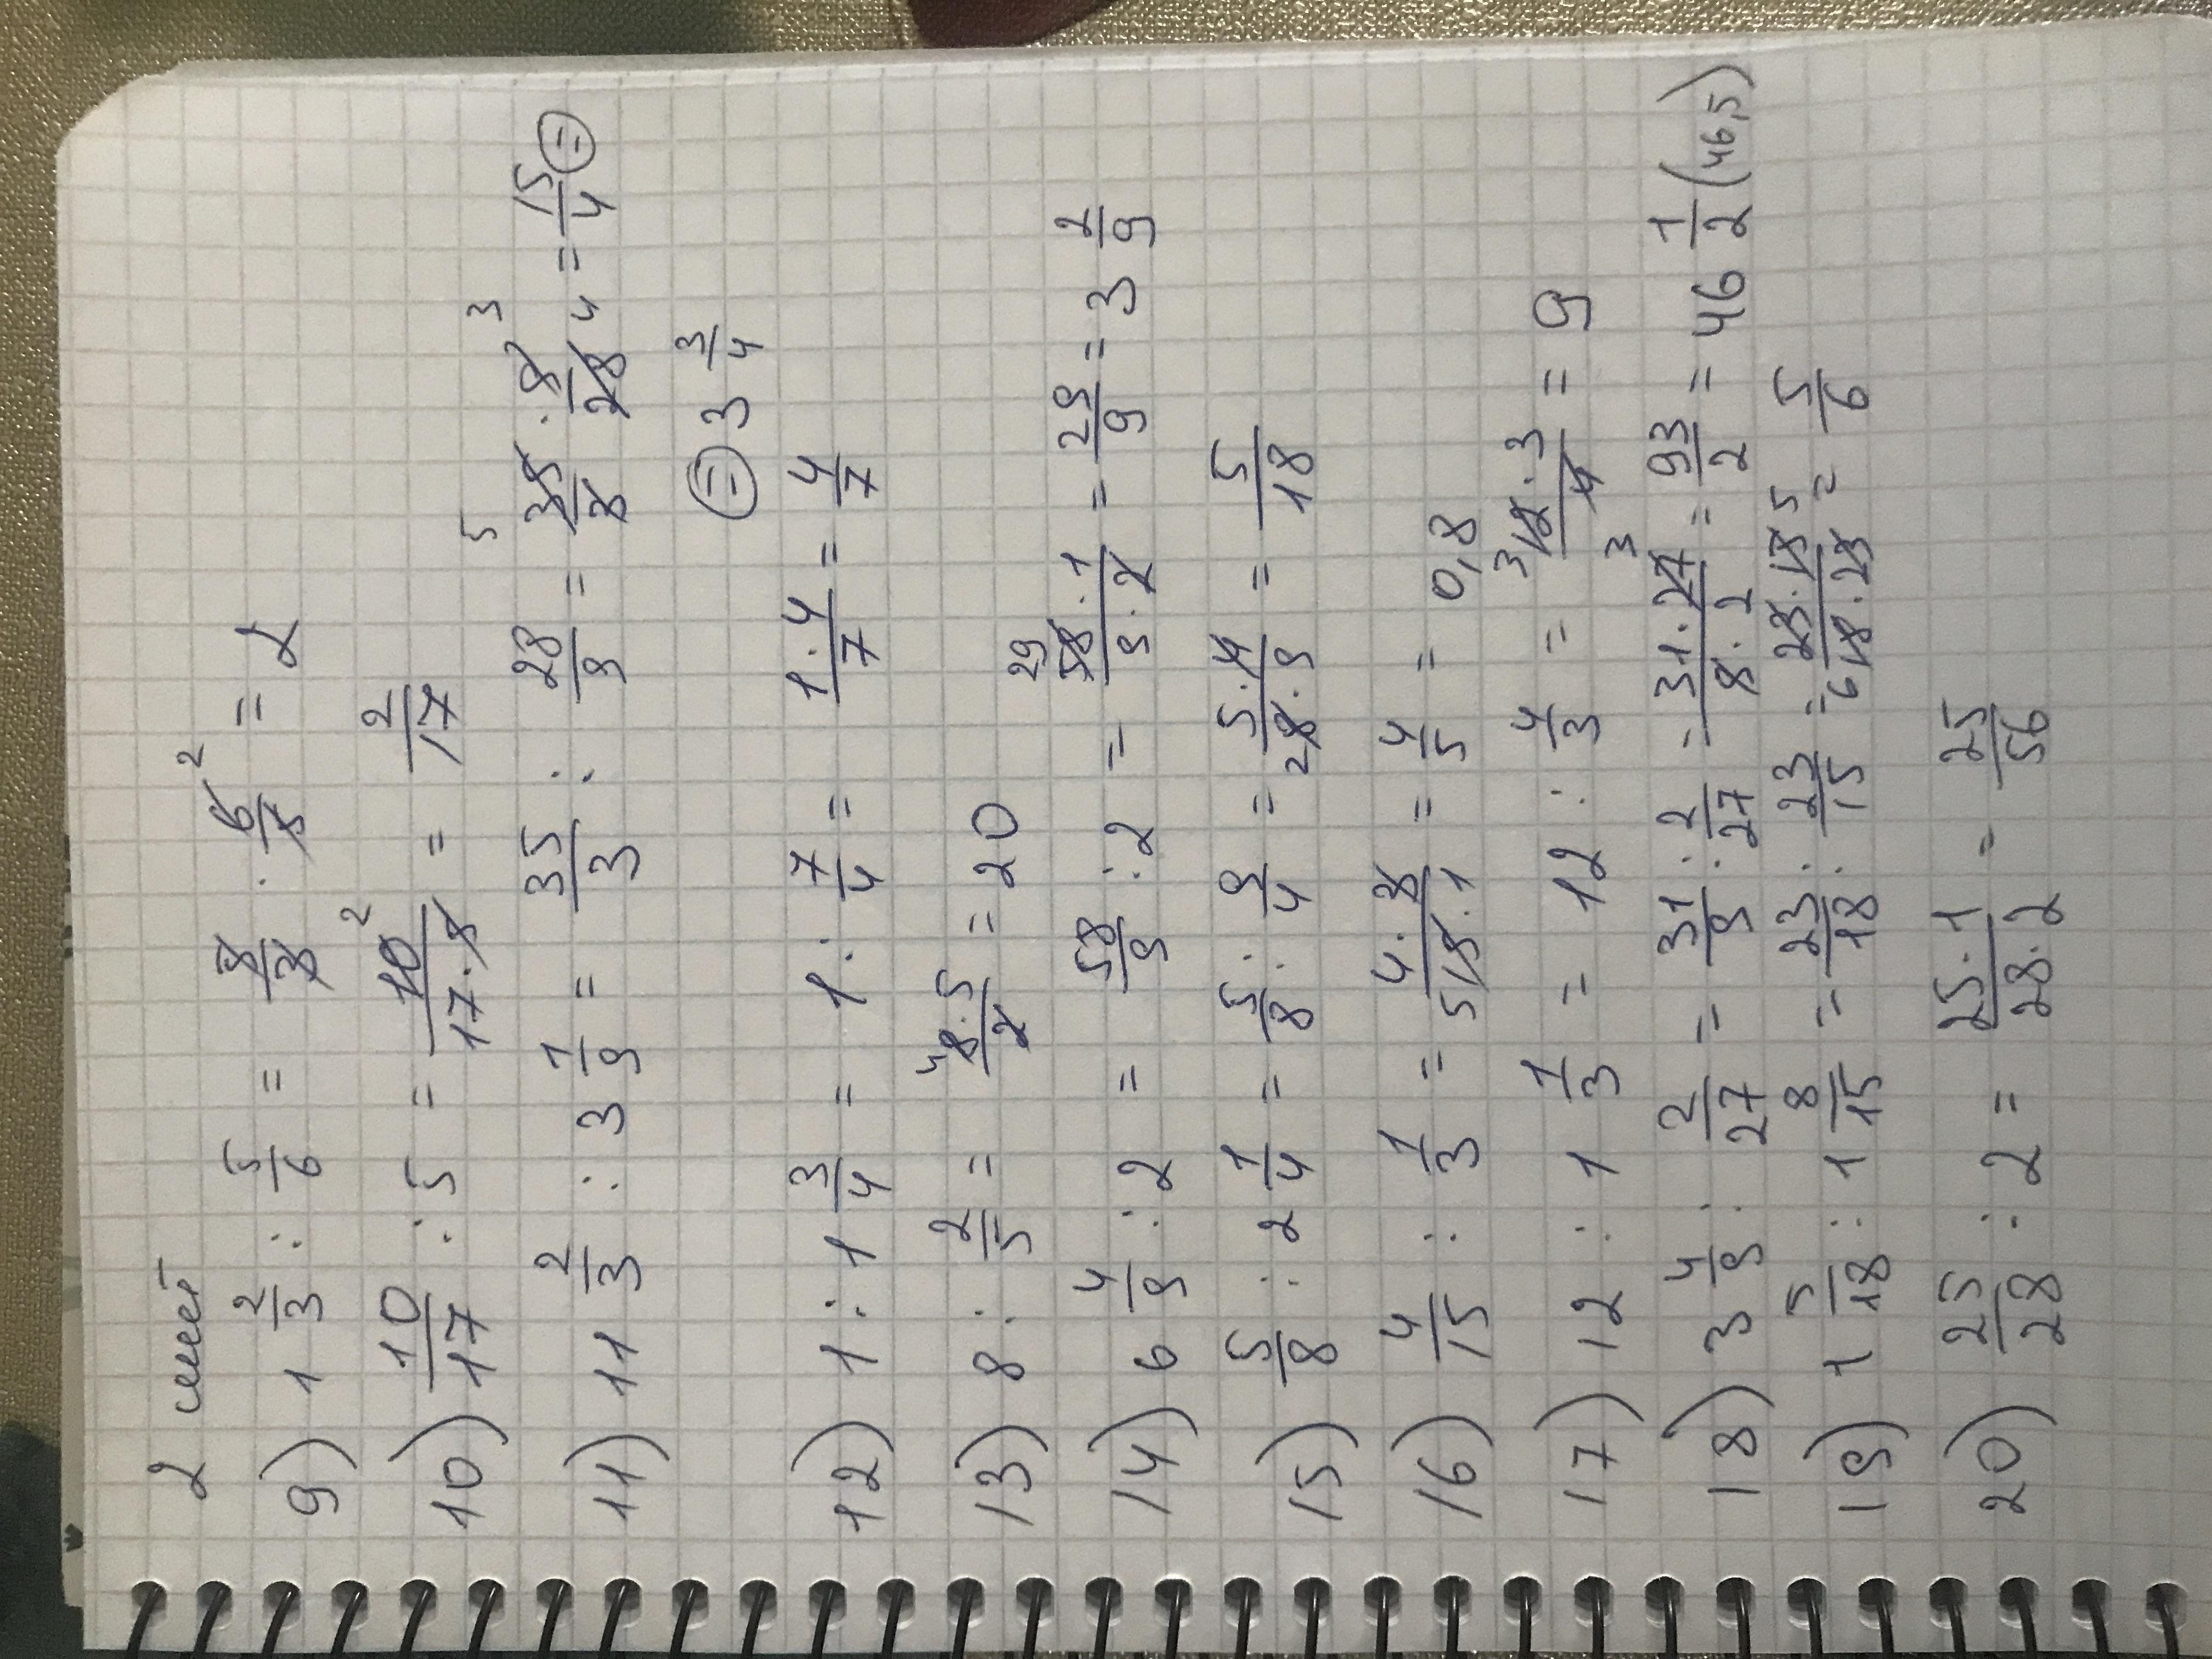 2 
9) 1 2/3 : 5/6 = 5/3 · 6/5 ² = 2
10) 10/17 : 5 = 10 ²/17·5 = 2/17
11) 11 2/3 : 3 1/9 = 35/3 : 28/9 = ⁵ 35/3 · 9 ³/28 ₄ = 15/4 =
= 3 3/4
12) 1 : 1 3/4 = 1 : 7/4 = 1·4/7 = 4/7
13) 8 : 2/5 = ⁴ 8·5/2 = 20
14) 6 4/9 : 2 = 58/9 : 2 = ²⁹ 58·1/9·2 = 29/9 = 3 2/9
15) 5/8 : 2 1/4 = 5/8 : 9/4 = 5·4/₂ 8·9 = 5/18
16) 4/15 : 1/3 = 4·3/₅ 15·1 = 4/5 = 0,8
17) 12 : 1 1/3 = 12 : 4/3 = ³ 12·3/4 = 9
18) 3 4/9 : 2/27 = 31/9 : 2/27 = 31·27 ³/9·2 = 93/2 = 46 1/2 (46,5)
19) 1 5/18 : 1 8/15 = 23/18 : 23/15 = 23·15 ⁵/₆ 18·23 = 5/6
20) 25/28 : 2 = 25·1/28·2 = 25/56